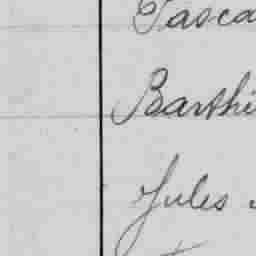 Pasca
Barthé
Jules